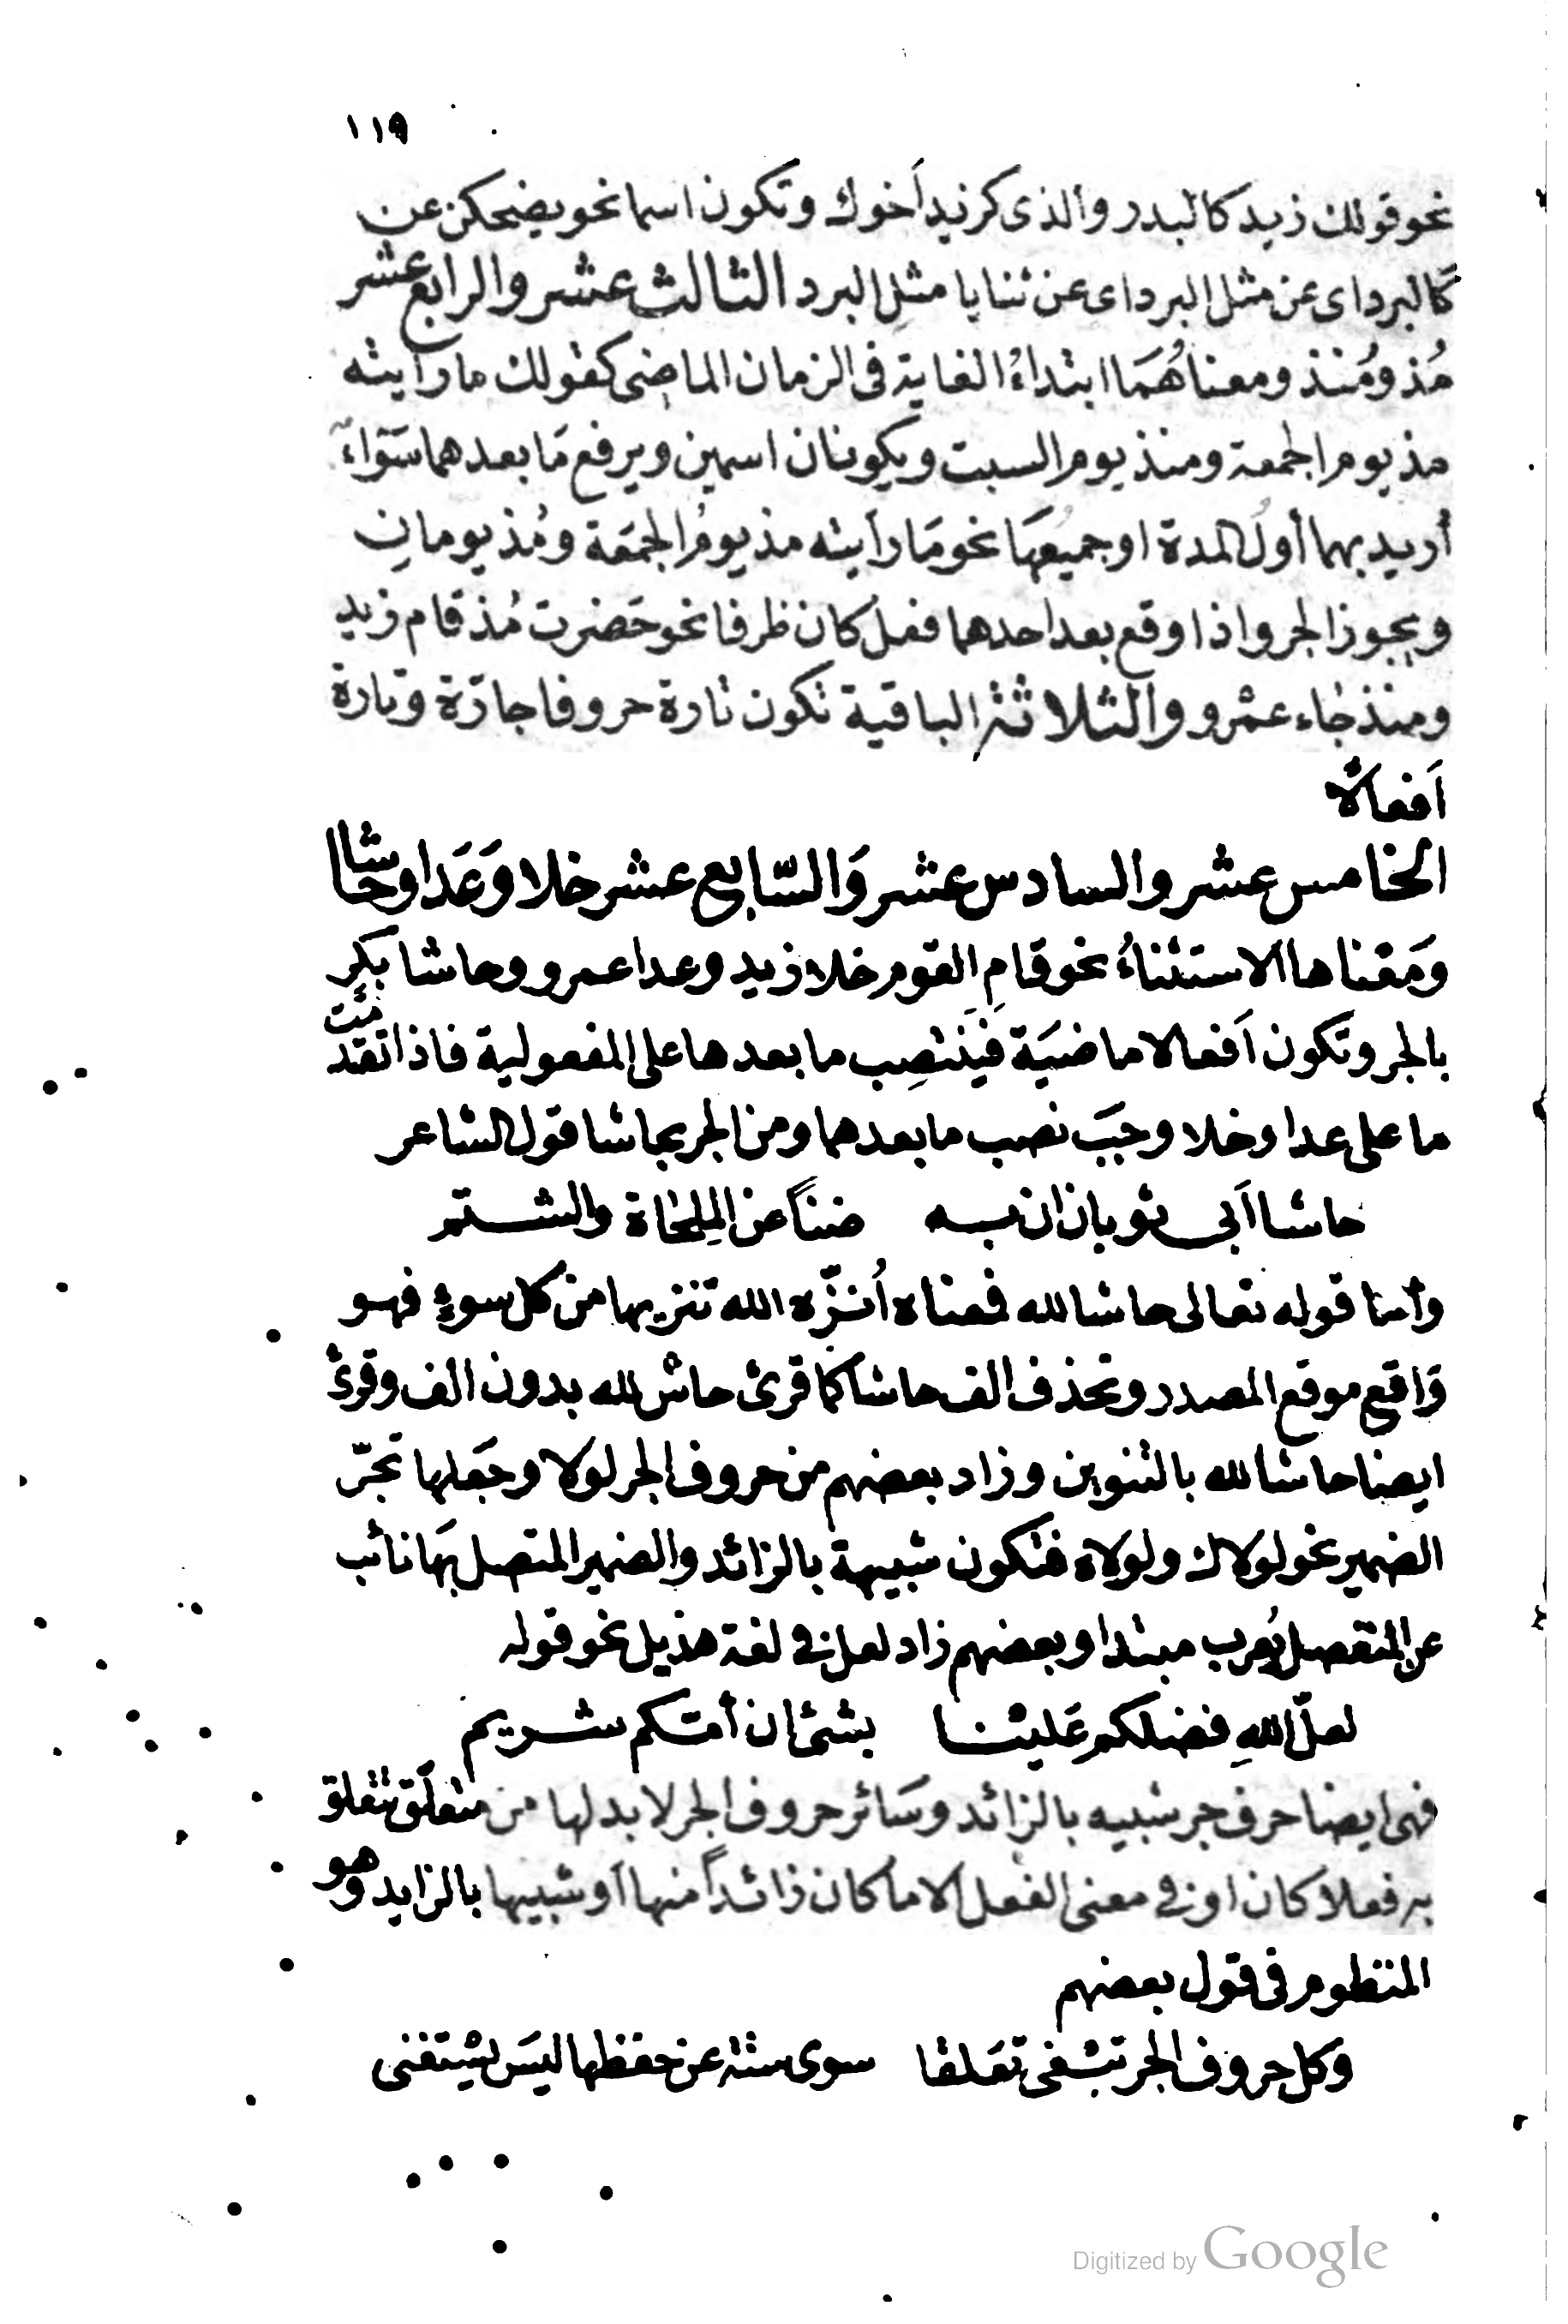 ١١٩
نحو قولك زيد كالبدر والذى كزيد أخوك وتكون اسما نحو يضحكن عن
كالبرد اى عن مثل البرد اى عن ثنايا مثل البرد الثالث عشر والرابع عشر
مُذ ومُنذ ومعناهُمَا ابتداءُ الغاية فى الزمان الماضى كقولك ما رأيته
مذ يوم الجمعة ومنذ يوم السبت ويكونان اسمين ويرفع مَا بعدهما سَوَاءٌ
أريد بهما أول المدة او جميعهَا نحو مَا رأيته مذ يومُ الجمَعة ومُذ يومانِ
ويجوز الجر واذا وقع بعد احدهما فعل كان ظرفا نحو حَضرت مُذ قام زيد
ومنذ جاء عمْرو والثلاثة الباقية تكون تارة حروفا جارّة وتارة
أفعالا
الخامس عشر والسادس عشر وَالسّابع عشر خلا وَعَدا وحَاشا
وَمَعناها الاستثناءُ نحو قامِ القوم خلا زيد وعدا عمرو وحاشا بكرٍ
بالجر وتكون أفعالا ماضيَة فينتصِب ما بعدها على المفعولية فاذا تقدمَت
ما على عدا وخلا وجبَ نصب ما بعدهما ومن الجر بحاشا قول الشاعر
حاشا أبى ثوبان ان به ضناً عن المِلحَاة والشتم
وأما قوله تعالى حاشا لله فمعناه أُنزّه الله تنزيها من كل سوءٍ فهو
وَاقع موقع المصدر وتحذف الف حاشا كما قرئ حاش لله بدون الف وقرئ
ايضا حاشا لله بالتنوين وزاد بعضهم من حروف الجر لولا وجَعلها تجرّ
الضمير نحو لولاك ولولاه فتكون شبيهة بالزائد والضمير المتصل بهَا نائب
عن المنفصل يُعرب مبتدا وبعضهم زاد لعل فى لغة هذيل نحو قوله
لعلّ اللهِ فضلكم عَليْنا بشئ ان أمتكم شريم
فهى ايضا حرف جر شبيه بالزائد وسَائر حروف الجر لا بد لها من متعلّق تتعلق
به فعلا كان او فى معنى الفعل الا ما كان زائداً منها أو شبيها بالزايد وهو
المنظوم فى قول بعضهم
وكل حروف الجر تبْغى تعَلقا سوى ستة عن حفظها ليسَ يسْتغنى
Digitized by Google